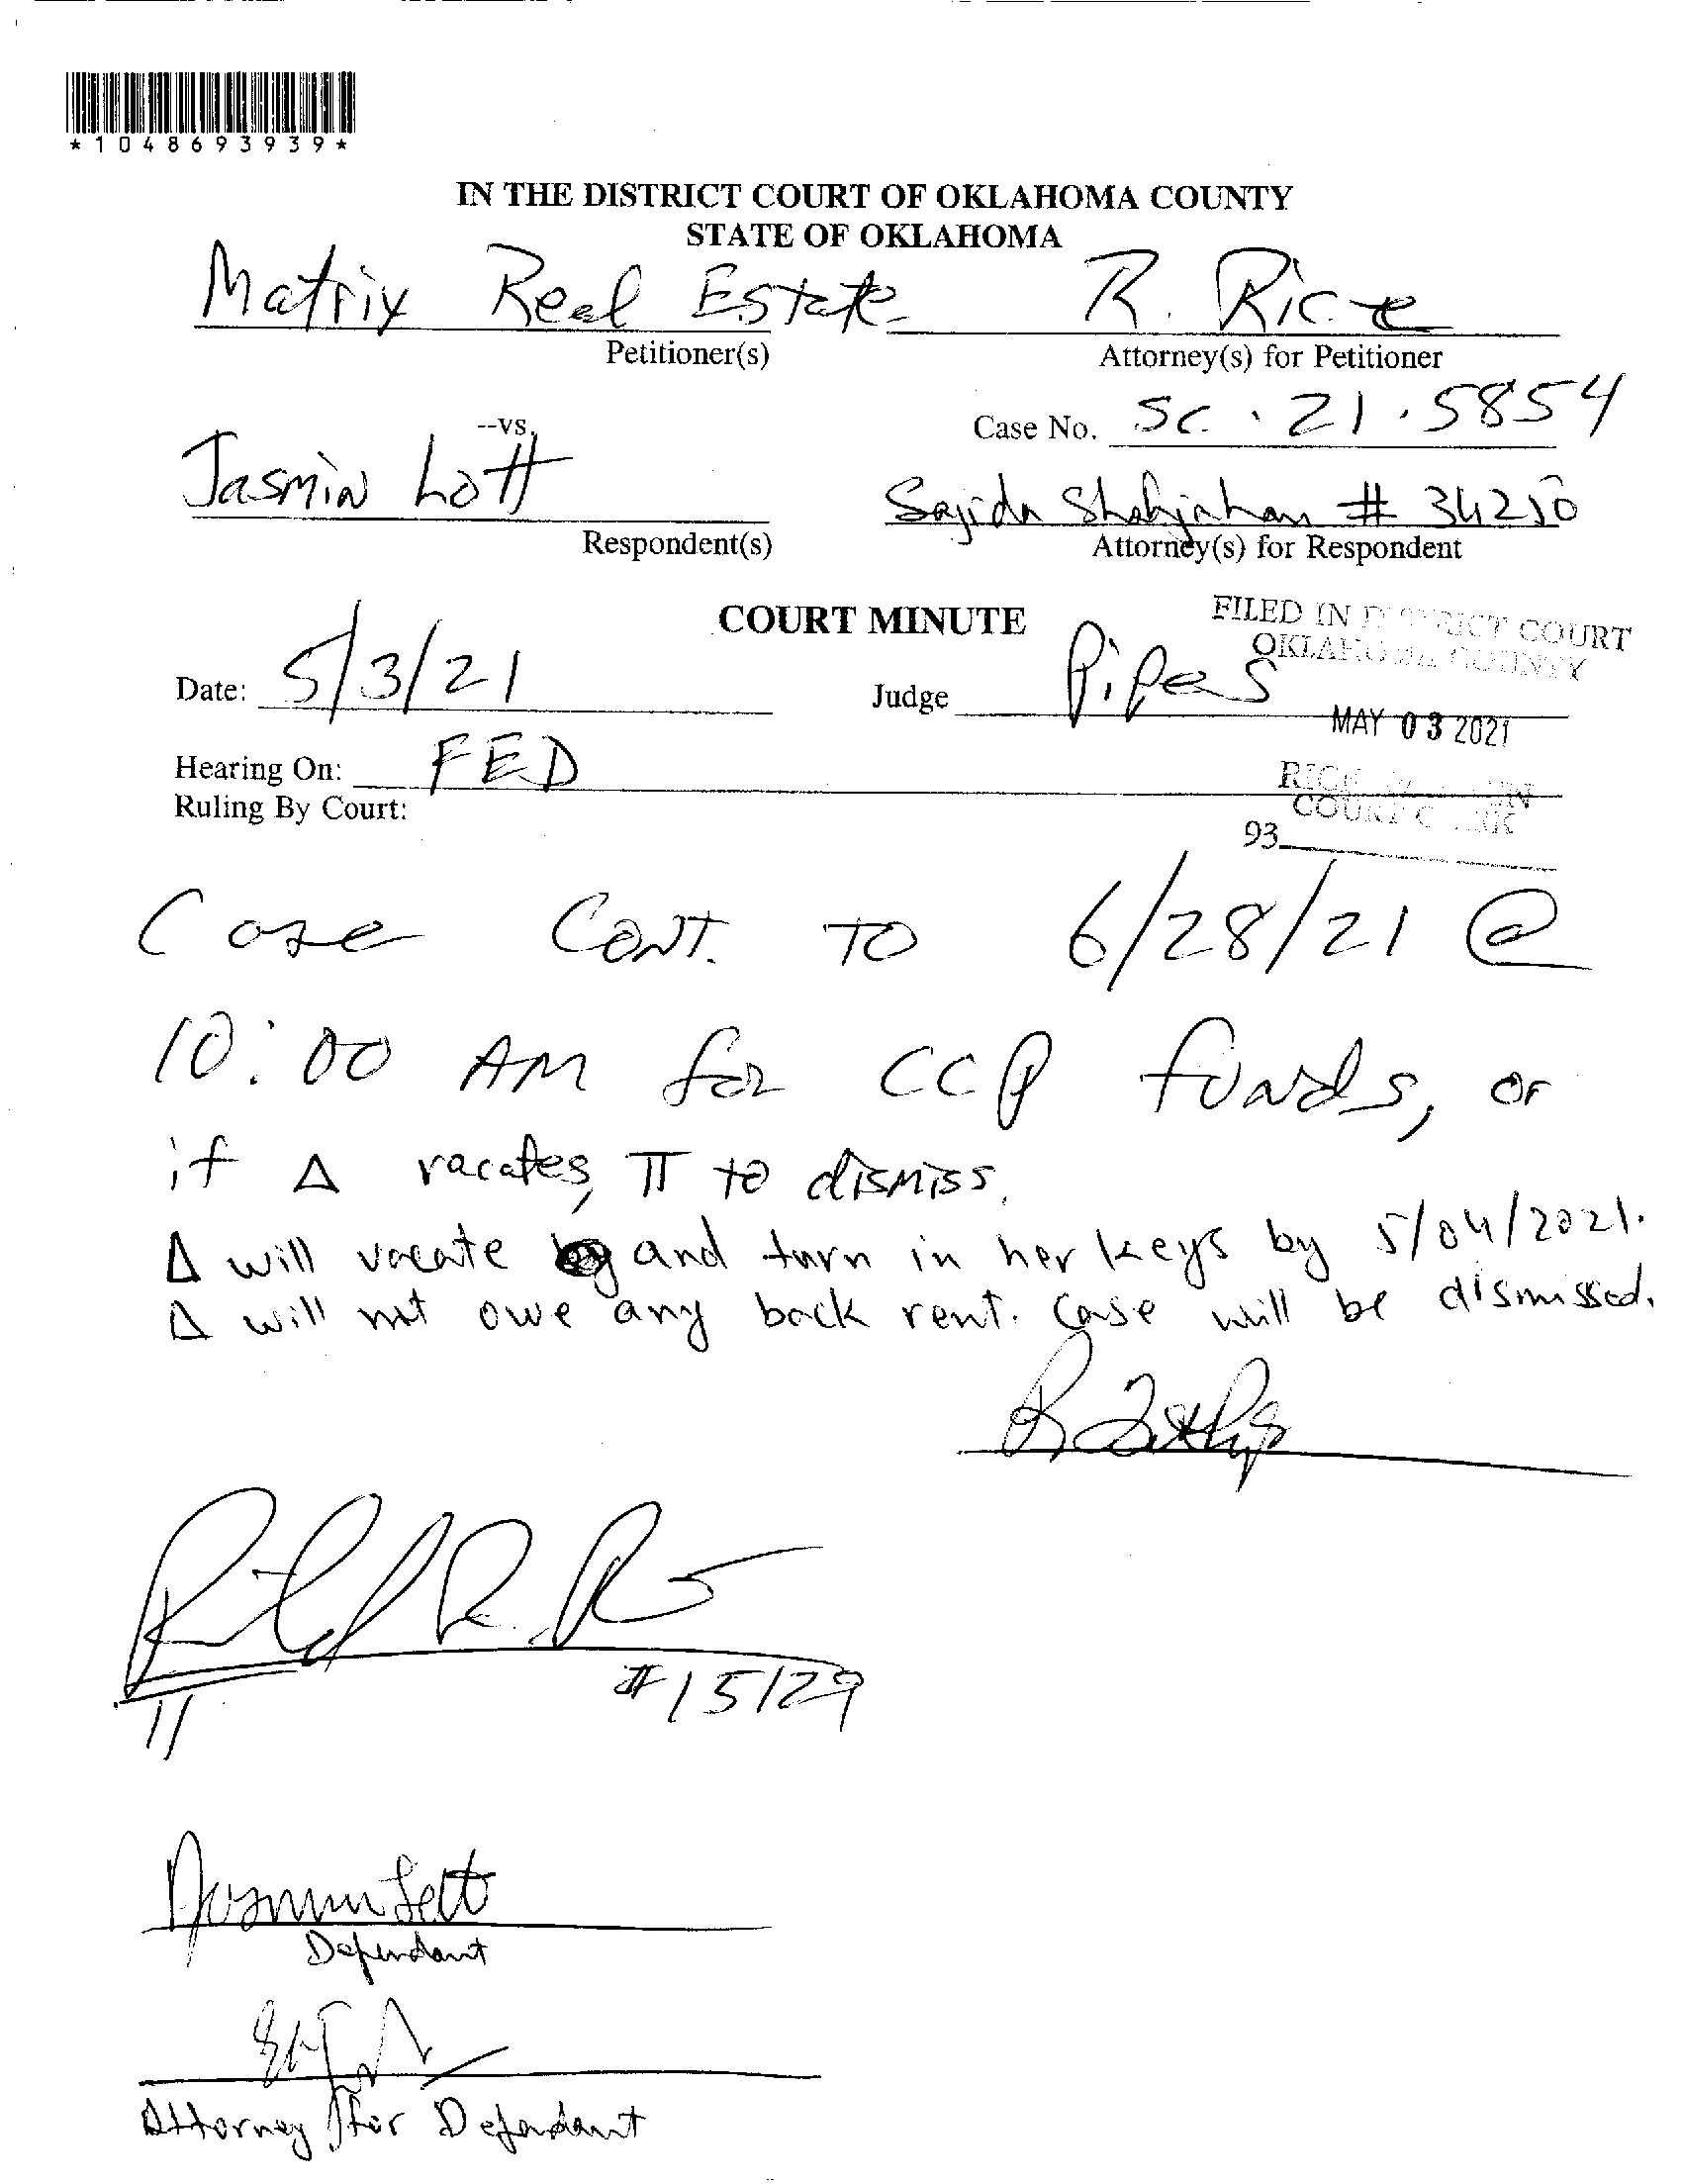 *1048693939*
IN THE DISTRICT COURT OF OKLAHOMA COUNTY
STATE OF OKLAHOMA
Matrix Real Estate R. Rice
Petitioner(s) Attorney(s) for Petitioner
--vs. Case No. SC.21.5854
Jasmin Lott Sajida Shahjahan # 34210
Respondent(s) Attorney(s) for Respondent
COURT MINUTE FILED IN DISTRICT COURT
OKLAHOMA COUNTY
Date: 5/3/21 Judge Pipes
MAY 03 2021
Hearing On: FED
Ruling By Court:
COURT CLERK
93
Case Cont. to 6/28/21 @
10:00 AM for CCP funds, or
if Δ vacates, π to dismiss.
Δ will vacate and turn in her keys by 5/04/2021.
Δ will not owe any back rent. Case will be dismissed.
#15129
π
Jasmin Lott
Defendant
Attorney for Defendant